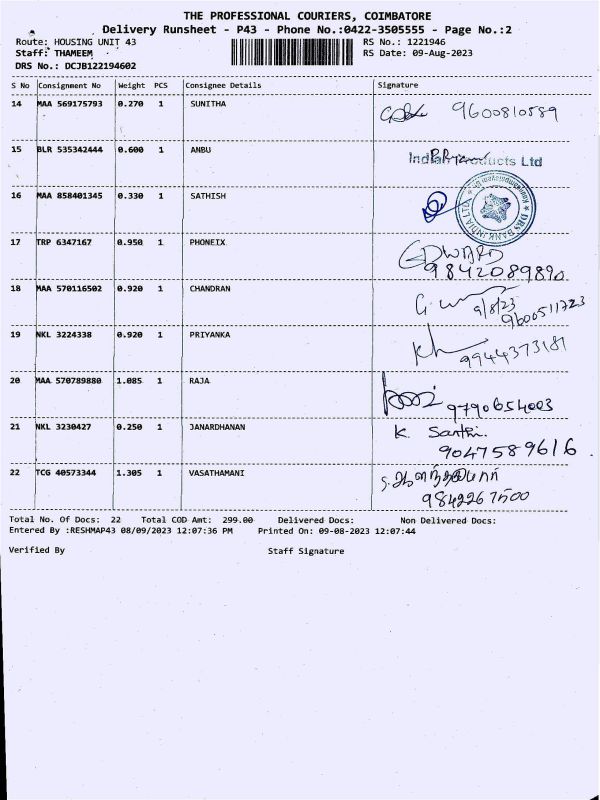 THE PROFESSIONAL COURIERS, COIMBATORE
Delivery Runsheet - P43 - Phone No.:0422-3505555 - Page No.:2
Route: HOUSING UNIT 43 RS No.: 1221946
Staff: THAMEEM RS Date: 09-Aug-2023
DRS No.: DCJB122194602
S No Consignment No Weight PCS Consignee Details Signature
14 MAA 569175793 0.270 1 SUNITHA 9600810589
15 BLR 535342444 0.600 1 ANBU Ltd
16 MAA 858401345 0.330 1 SATHISH DBS BANK INDIA LTD
17 TRP 6347167 0.950 1 PHONEIX EDWARD
9842089890
18 MAA 570116502 0.920 1 CHANDRAN 9/8/23
9600511723
19 NKL 3224338 0.920 1 PRIYANKA 9944373181
20 MAA 570789880 1.085 1 RAJA 9790654003
21 NKL 3230427 0.250 1 JANARDHANAN K. Santhi.
9047589616
22 TCG 40573344 1.305 1 VASATHAMANI
9842267500
Total No. Of Docs: 22 Total COD Amt: 299.00 Delivered Docs: Non Delivered Docs:
Entered By :RESHMAP43 08/09/2023 12:07:36 PM Printed On: 09-08-2023 12:07:44
Verified By Staff Signature